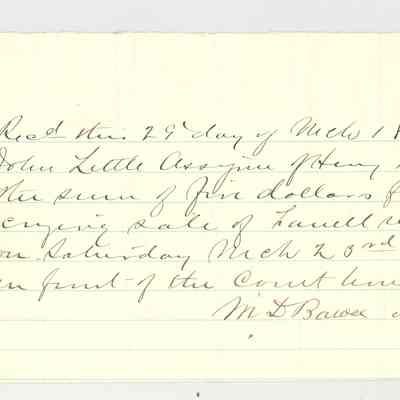 Recd this 29th day of Mch 18
John Little Assignee of Henry
the sum of five dollars f
crying sale of Farrell
on Saturday Mch 23rd
in front of the Court hou
M D Bowser